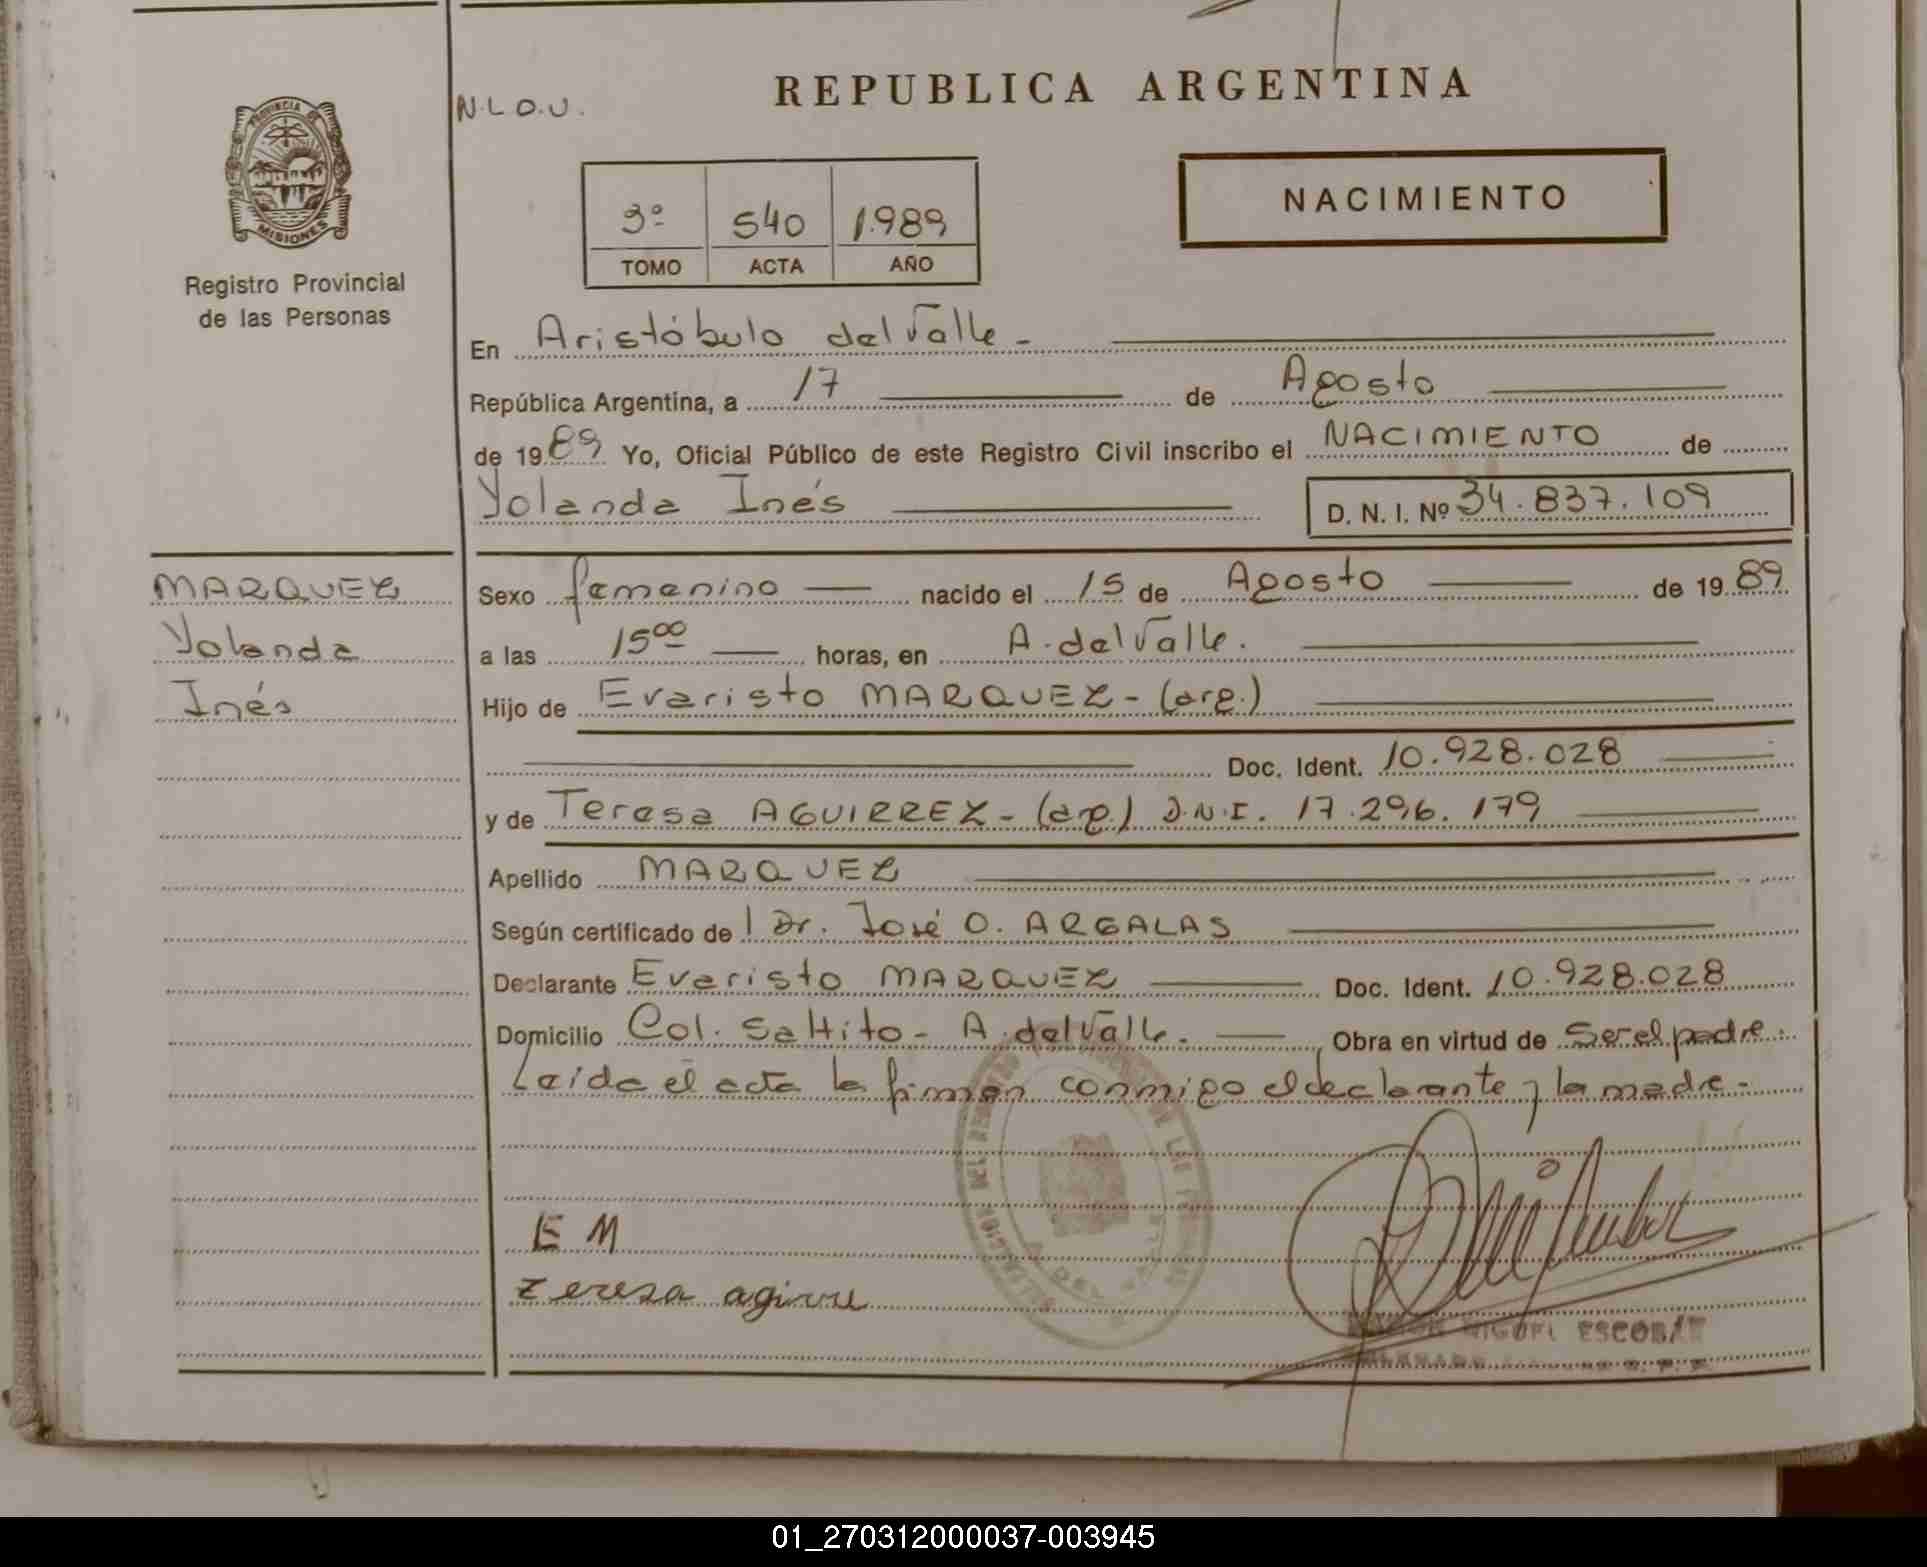 REPUBLICA ARGENTINA
N.L.O.U.
PROVINCIA DE
MISIONES
Registro Provincial
de las Personas
3º 540 1.989
TOMO ACTA AÑO
NACIMIENTO
En Aristóbulo del Valle -
República Argentina, a 17 de Agosto
de 1989 Yo, Oficial Público de este Registro Civil inscribo el NACIMIENTO de
Yolanda Inés D. N. I. Nº 34.837.109
MARQUEZ
Yolanda
Inés
Sexo femenino nacido el 15 de Agosto de 1989
a las 15⁰⁰ horas, en A. del Valle.
Hijo de Evaristo MARQUEZ - (arg.)
Doc. Ident. 10.928.028
y de Teresa AGUIRREZ - (arg.) D.N.I. 17.296.179
Apellido MARQUEZ
Según certificado de l Dr. José O. ARGALAS
Declarante Evaristo MARQUEZ Doc. Ident. 10.928.028
Domicilio Col. Saltito - A. del Valle. Obra en virtud de Ser el padre.
Leida el acta la firman conmigo el declarante y la madre -
E M
Teresa agirre
MIGUEL ESCOBAR
01_270312000037-003945